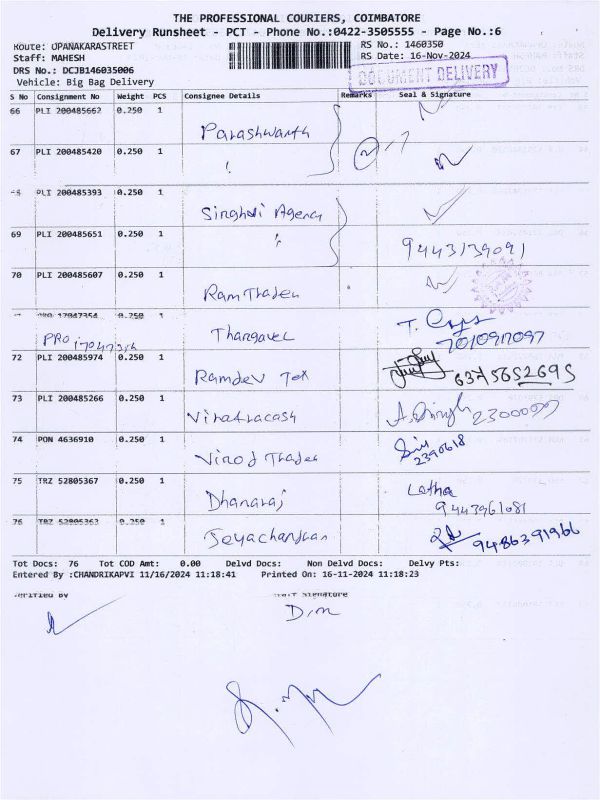 THE PROFESSIONAL COURIERS, COIMBATORE
Delivery Runsheet - PCT - Phone No.:0422-3505555 - Page No.:6
Route: OPANAKARASTREET RS No.: 1460350
Staff: MAHESH RS Date: 16-Nov-2024
DRS No.: DCJB146035006 DOCUMENT DELIVERY
Vehicle: Big Bag Delivery
S No Consignment No Weight PCS Consignee Details Remarks Seal & Signature
66 PLI 200485662 0.250 1
Parashwanth
67 PLI 200485420 0.250 1
PLI 200485393 0.250 1
Singhali Agency
69 PLI 200485651 0.250 1
9443139091
70 PLI 200485607 0.250 1
Ram Trader
PRO 17047354 0.250 1
Thangavel
7010917097
72 PLI 200485974 0.250 1
Ramdev Tex 63745652695
73 PLI 200485266 0.250 1
2300097
74 PON 4636910 0.250 1
Vinod Trader 2390618
75 TRZ 52805367 0.250 1 Latha
Dhanaraj 9443961081
76 TRZ 52805363 0.250 1
Jeyachandran 9486391966
Tot Docs: 76 Tot COD Amt: 0.00 Delvd Docs: Non Delvd Docs: Delvy Pts:
Entered By :CHANDRIKAPVI 11/16/2024 11:18:41 Printed On: 16-11-2024 11:18:23
Verified By Signature